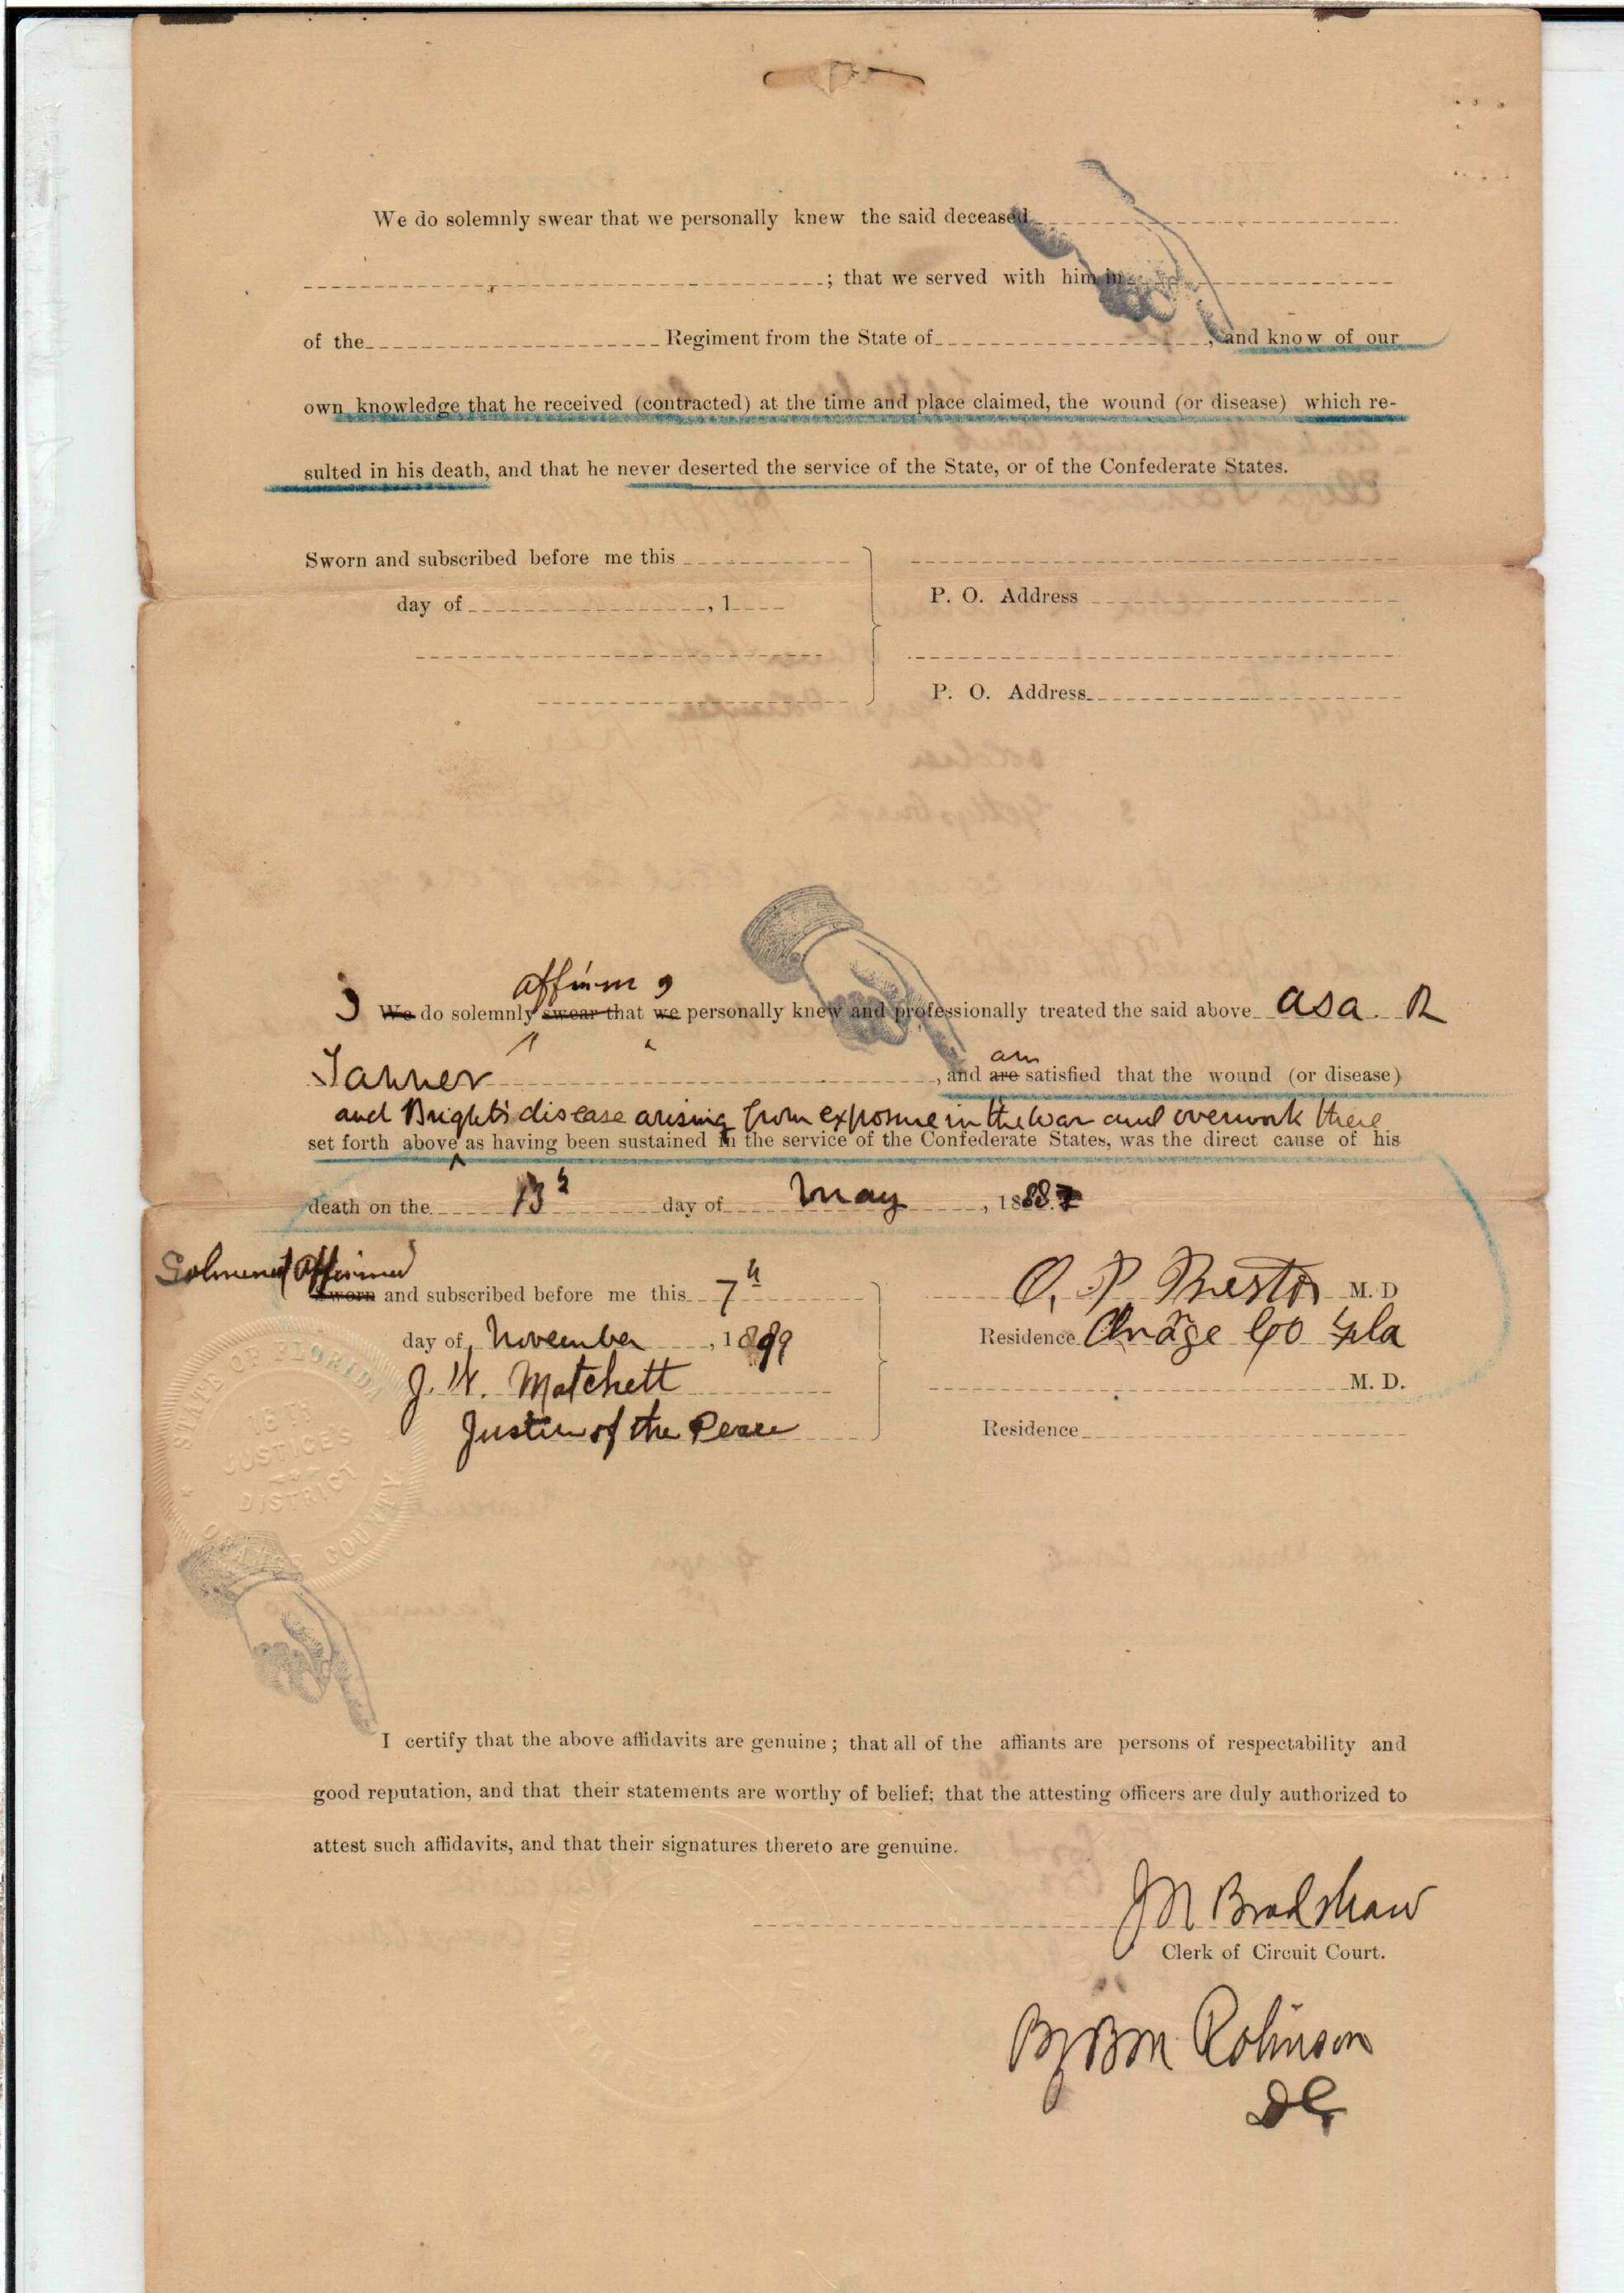 We do solemnly swear that we personally knew the said deceased
; that we served with him in
of the Regiment from the State of , and know of our
own knowledge that he received (contracted) at the time and place claimed, the wound (or disease) which re-
sulted in his death, and that he never deserted the service of the State, or of the Confederate States.
Sworn and subscribed before me this
day of , 1
P. O. Address
P. O. Address
affirm I
I We do solemnly swear that we personally knew and professionally treated the said above Asa. R
am
Tanner , and are satisfied that the wound (or disease)
and Bright's disease arising from exposure in the war and overwork there
set forth above as having been sustained in the service of the Confederate States, was the direct cause of his
death on the 13 day of May , 188
Affirmed
Sworn and subscribed before me this 7th
day of November , 1899
J. W. Matchett
Justice of the Peace
M. D
Residence Orange Co Fla
M. D.
Residence
STATE OF FLORIDA
16TH
JUSTICE'S
DISTRICT
ORANGE COUNTY
I certify that the above affidavits are genuine; that all of the affiants are persons of respectability and
good reputation, and that their statements are worthy of belief; that the attesting officers are duly authorized to
attest such affidavits, and that their signatures thereto are genuine.
J M Bradshaw
Clerk of Circuit Court.
By B M Robinson
DC